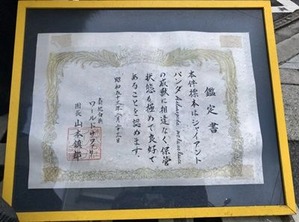 鑑定書
本件標本はジャイアント
パンダ
の成獣に相違なく保管
状態も極めて良好で
あることを認めます
昭和五十三年八月二十日
ワールドサファリ
団長 山本